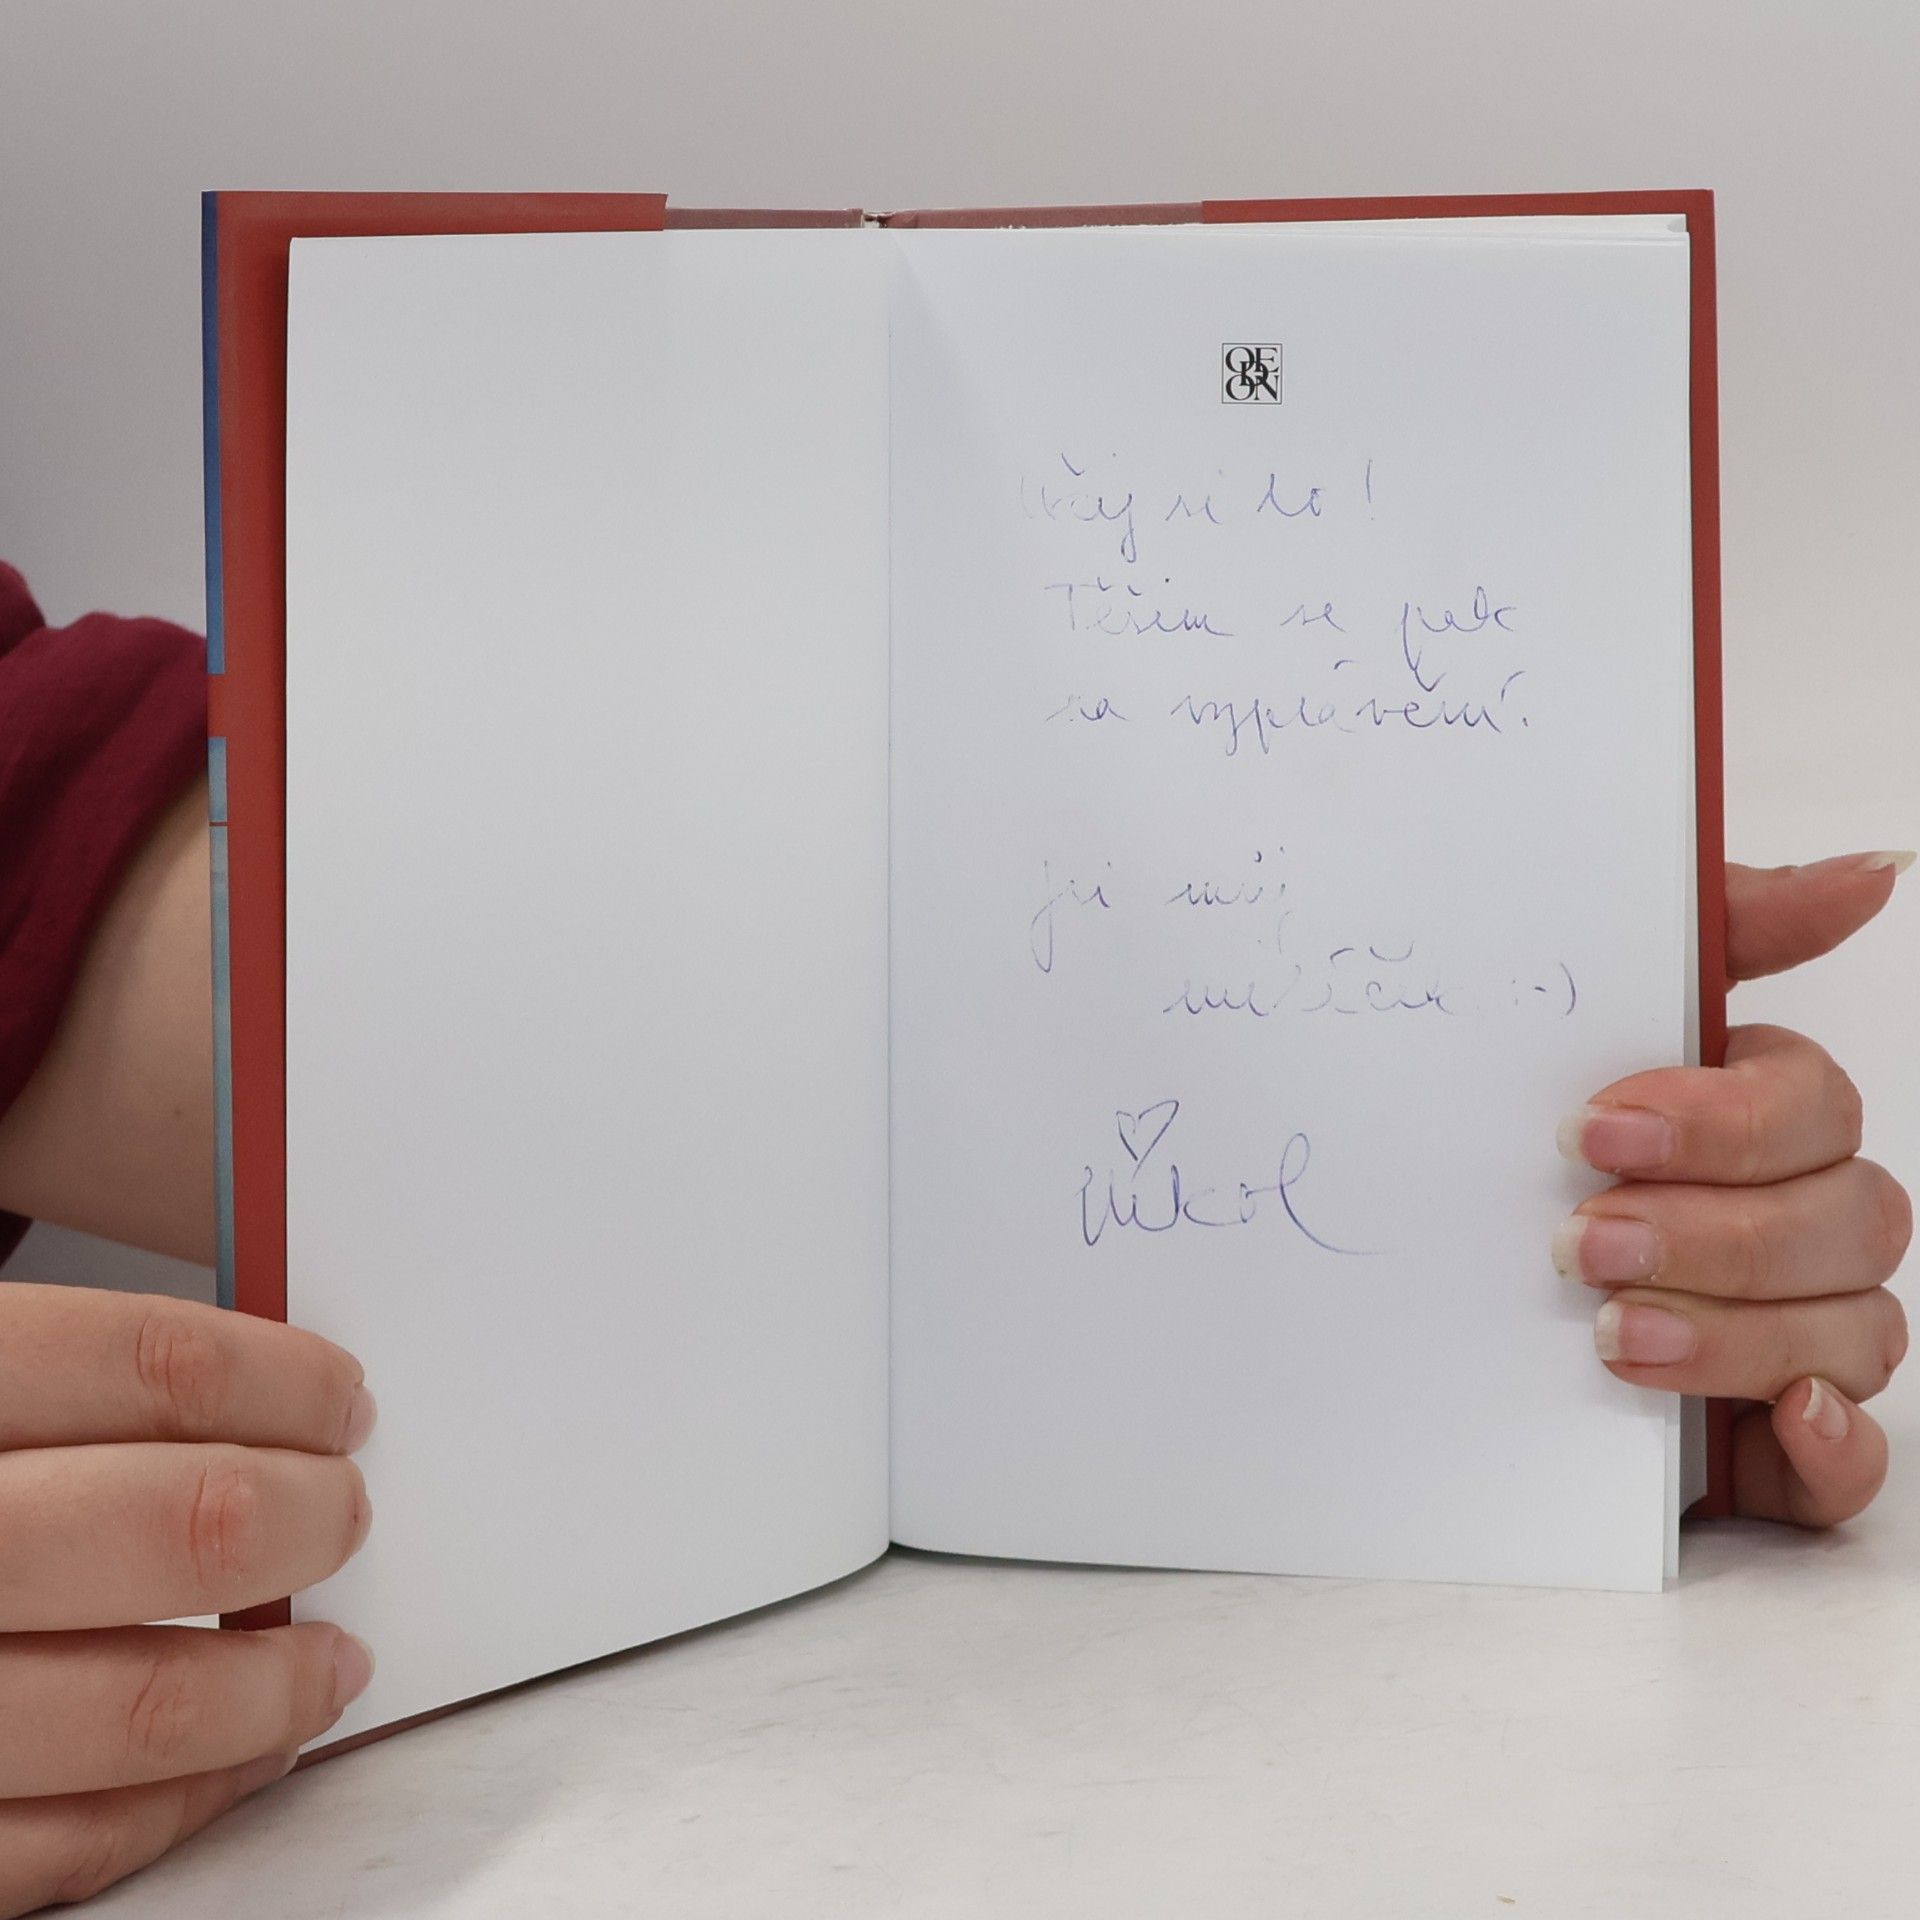 ODEON
Užij si to!
Těším se pak
na vyprávění.
Jsi můj
miláček :-)
Nikol